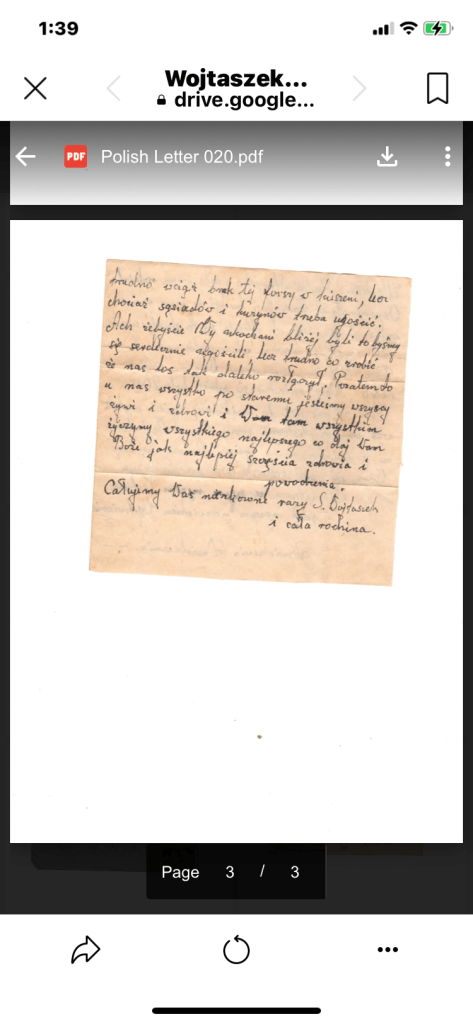 1:39
Wojtaszek...
drive.google...
PDF Polish Letter 020.pdf
trudno wciąż brak tej forsy w kieszeni, lecz
chociaż sąsiadów i kuzynów trzeba ugościć.
Ach żebyście Wy kochani bliżej byli to byśmy
się serdecznie ugościli, lecz trudno co zrobić
że nas los tak daleko rozłączył. Pozatem to
u nas wszystko po staremu jesteśmy wszyscy
żywi i zdrowi i Wam tam wszystkim
życzymy wszystkiego najlepszego co daj Wam
Boże jak najlepiej szczęścia zdrowia i
powodzenia.
Całujemy Was razy S.
i cała rodzina.
Page 3 / 3